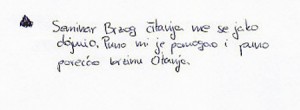 Seminar Brzog čitanja me se jako
dojmio. Puno mi je pomogao i puno
povećao brzinu čitanja.